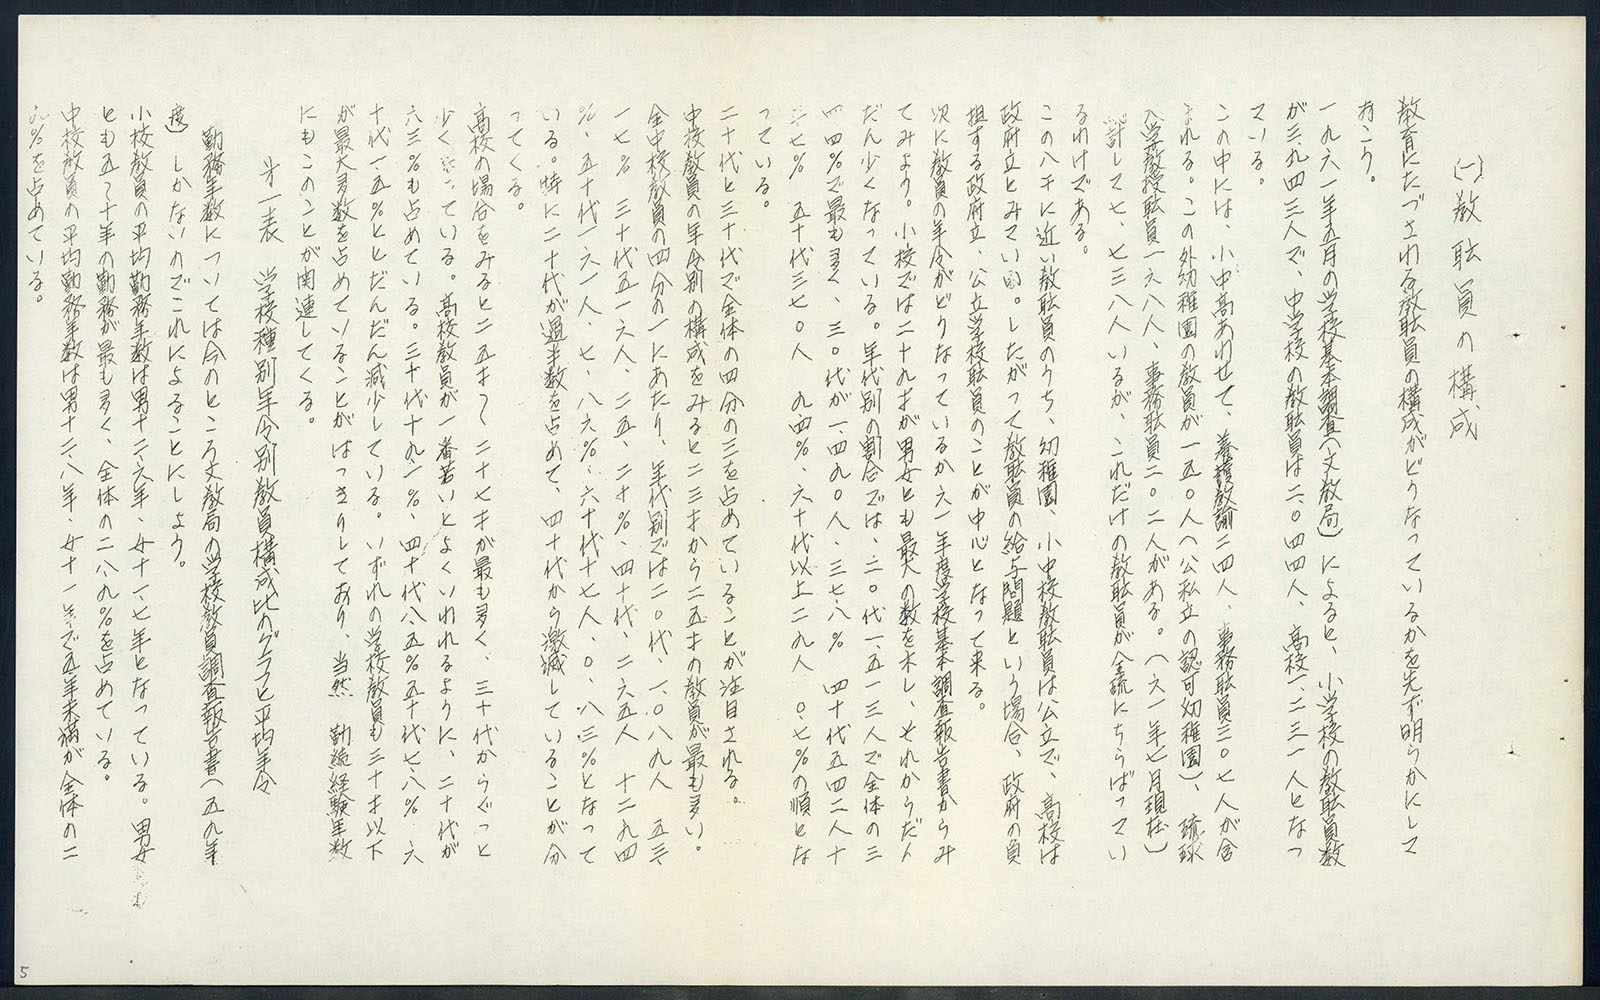 (一) 教 耺 員 の 構 成
教育にたづさわる教耺員の構成がどうなっているかを先ず明らかにして
おこう。
一九六一年五月の学校基本調査(文教局)によると、小学校の教耺員数
が三、九四三人で、中学校の教耺員は二、〇四四人、高校一、二三一人となっ
ている。
この中には、小中高あわせて、養護教諭二四人、事務耺員三〇七人が含
まれる。この外幼稚園の教員が一五〇人(公私立の認可幼稚園)、琉球
大学教授耺員一六八人、事務耺員二〇二人がある。(六一年七月現在)
総計して七、七三八人いるが、これだけの教耺員が全琉にちらばってい
るわけである。
この八千に近い教耺員のうち、幼稚園、小中校教耺員は公立で、高校は
政府立とみてい。したがって教耺員の給与問題という場合、政府の負
担する政府立、公立学校耺員のことが中心となって来る。
次に教員の年令がどうなっているか六一年度学校基本調査報告書からみ
てみよう。小校では二十九才が男女とも最大の数を木し、それからだん
だん少くなっている。年代別の割合では、二〇代一、五一三人で全体の三
四四%で最も多く、三〇代が一、四九〇人、三七、八% 四十代五四二人十
三七% 五十代三七〇人 九、四%、六十代以上二九人 〇、七%の順とな
っている。
二十代と三十代で全体の四分の三を占めていることが注目される。
中校教員の年令別の構成をみると二三才から二五才の教員が最も多い。
全中校教員の四分の一にあたり、年代別では二〇代、一、〇八九人 五三、
一七% 三十代五一六人、二五、二十%、四十代、二六五人 十二、九四
%、五十代一六一人、七、八六%、六十代十七人、〇、八三%となって
いる。特に二十代が過半数を占めて、四十代から激減していることが分
ってくる。
高校の場合をみると二五才～二十七才が最も多く、三十代からぐっと
少くなっている。高校教員が一番若いとよくいわれるように、二十代が
六三%も占めている。三十代十九、一%、四十代八、五%五十代七、八% 六
十代一、五%ととだんだん減少している。いずれの学校教員も三十才以下
が最大多数を占めていることがはっきりしており、当然 勤続経験年数
にもこのことが関連してくる。
才一表 学校種別年令別教員構成比のグラフと平均年令
勤務年数については今のところ文教局の学校教員調査報告書(五九年
度) しかないのでこれによることにしよう。
小校教員の平均勤務年数は男十二、六年、女十一、七年となっている。男女
とも五～十年の勤務が最も多く、全体の二八、九%を占めている。
中校教員の平均勤務年数は男十二、八年、女十一年で五年未満が全体の二
九%を占めている。
5